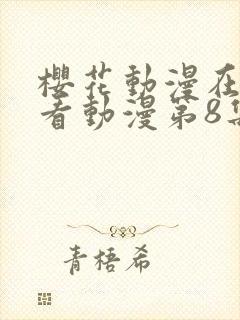 櫻花動漫在
看動漫第8集
青梧希